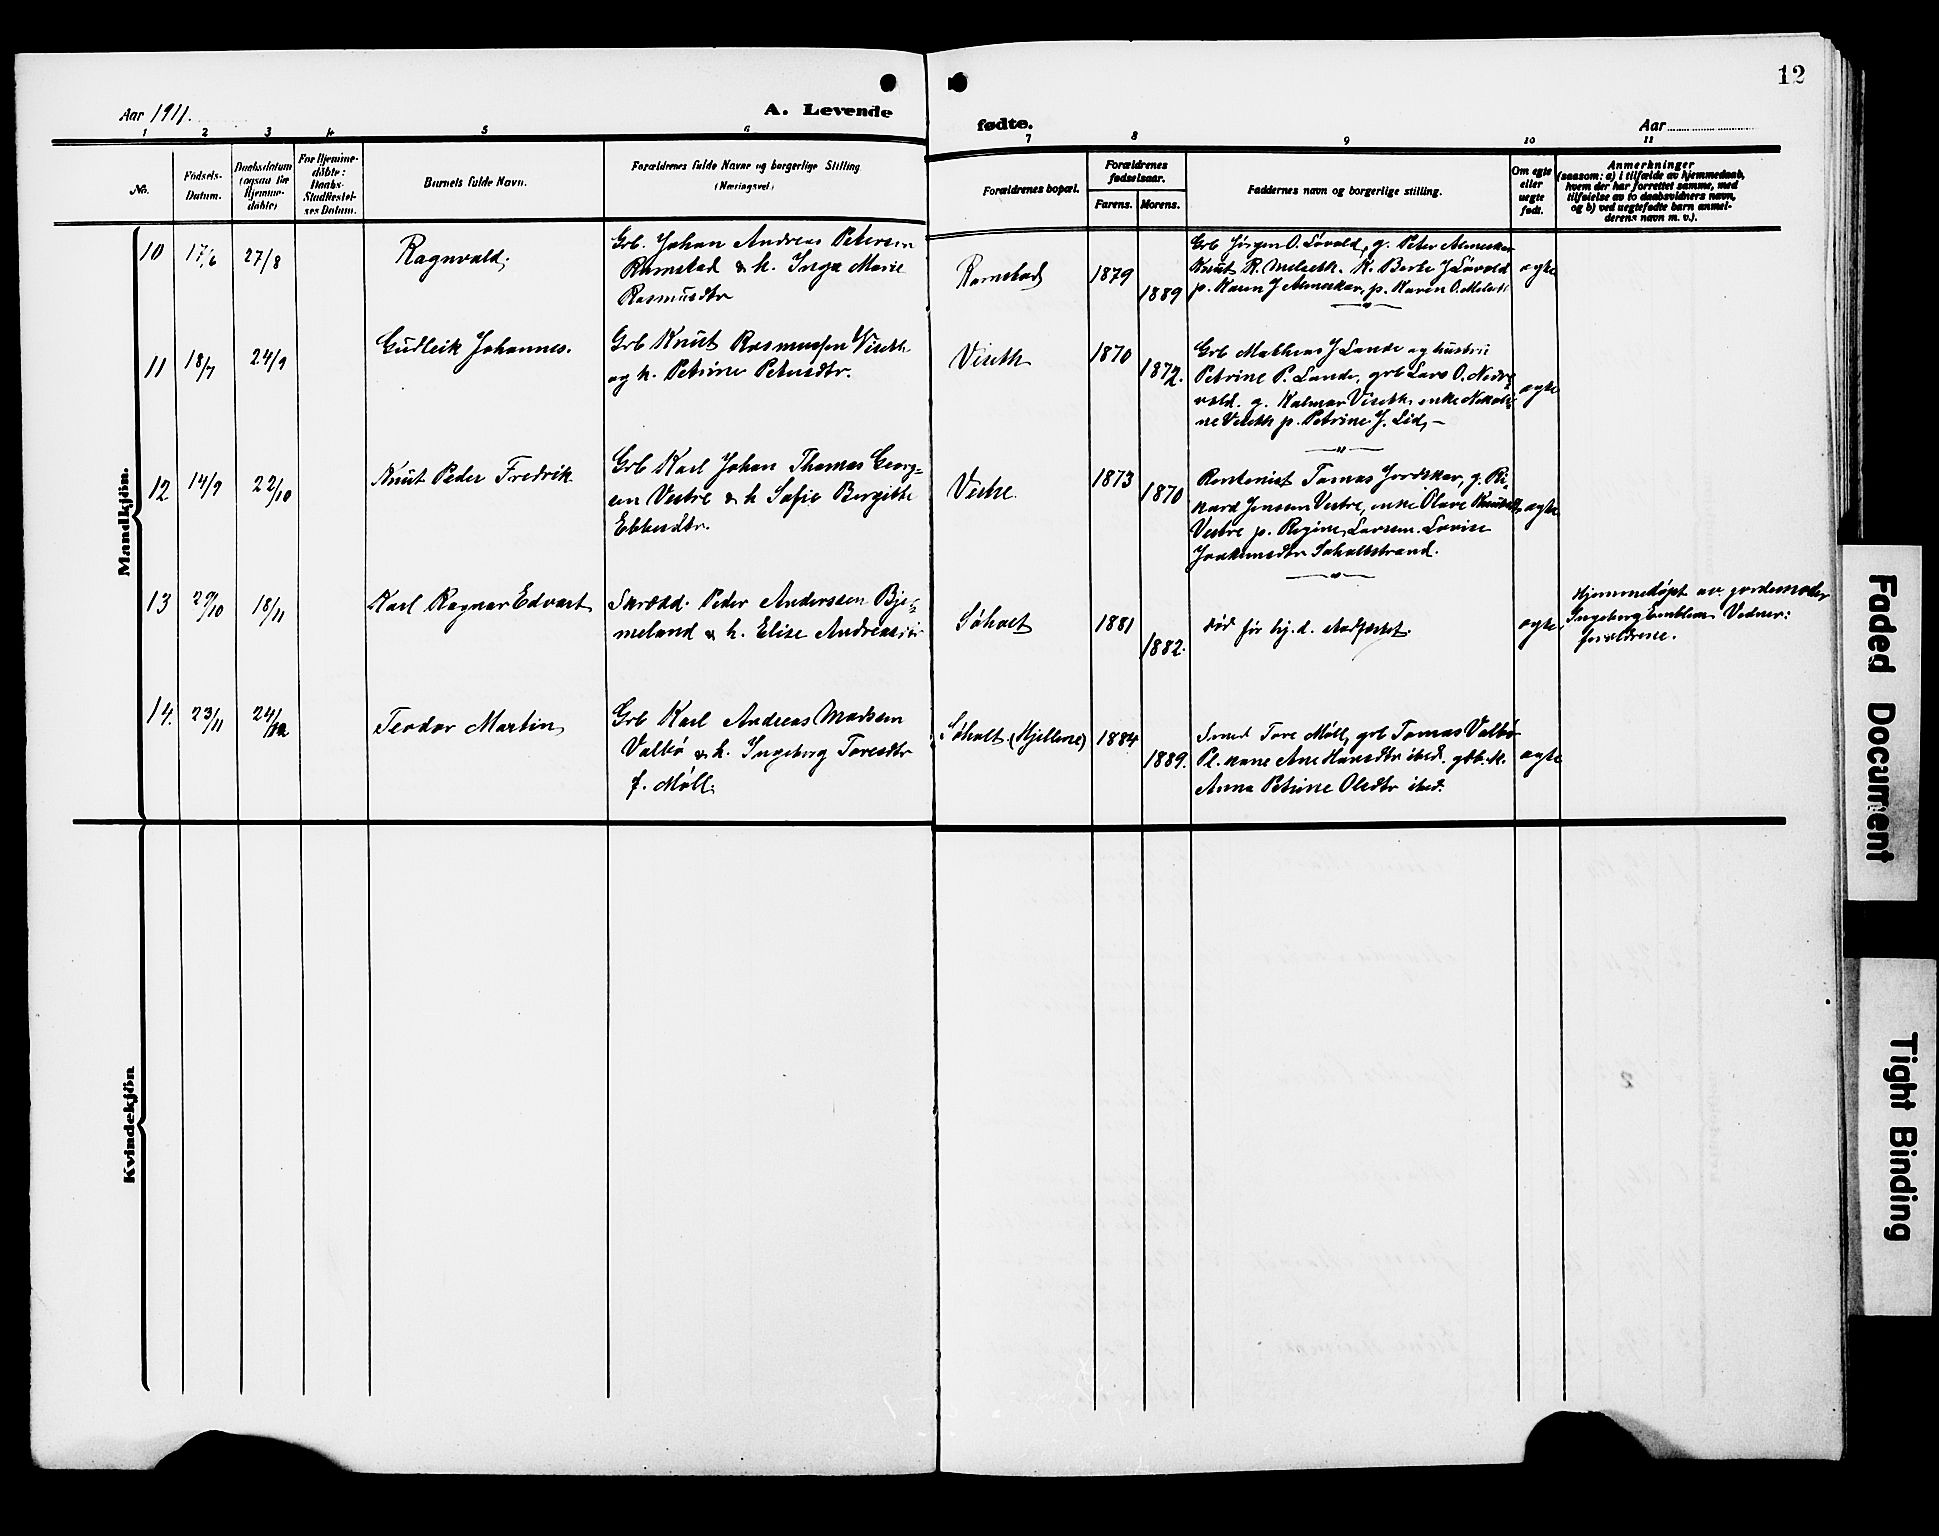 12
Aar 1911.
A. Levende
fødte.
Aar
1 2 3 4 5 6 7 8 9 10 11
No.
Fødsels-
Datum.
Daabsdatum
(ogsaa for
Hjemme-
døbte)
For Hjemme-
døbte:
Daabs-
Stadfestel-
ses Datum.
Barnets fulde Navn.
Forældrenes fulde Navne og borgerlige Stilling
(Næringsvei)
Forældrenes bopæl.
Forældrenes
fødselsaar.
Farens. Morens.
Faddernes navn og borgerlige stilling.
Om egte
eller
uegte
født.
Anmerkninger
(saasom: a) i tilfælde av hjemmedaab,
hvem der har forrettet samme, med
tilføielse av to daabsvidners navn,
og b) ved uegtefødte barn anmel-
derens navn m. v.).
Mandkjön.
10 17/6 27/8
Ragnvald.
Grb. Johan Andreas Petersen
Ramstad & h. Inga Marie
Rasmusdtr
Ramstad
1879
1889
Grb Jørgen O. Løvold, g. Peter
Knut R. Melseth. K. Berte J Løvold
p. Karen J p. Karen O.
egte
11 18/7 24/9
Gudleik Johannes.
Grb Knut Rasmussen Viseth
og h. Petrine Petersdtr.
Viseth
1870
1872.
Grb Mathias J Lande og hustru
Petrine P. Lande, grb Lars O. Nedre
vold. g. Kalmar Viseth, enke Nikoli
ne Viseth p. Petrine J. Lid, -
egte
12 14/9 22/10
Knut Peder Fredrik
Grb Karl Johan Thomas Georg=
sen Vestre & h Sofie Bergitte
Ebbesdtr.
Vestre.
1873
1870
Rentenist Tomas Jordskar, g. Ri-
kard Jensen Vestre, enke Olave
Vestre p. Regine Larsen. Lovise
Joakimsdtr Søholtstrand.
egte
13 29/10 18/11
Karl Ragnar Edvart
Skrædd. Peder Anderssen Bje=
meland & h. Elise Andreasdtr
Søholt
1881
1882.
død før hj. d. stadfæstet.
egte
Hjemmedøpt av jordemoder
Ingeborg Emblem Vidner:
forældrene.
14. 23/11 24/12
Teodor Martin
Grb Karl Andreas Madsen
Valbø & h. Ingeborg Toresdtr
f. Møll.
Søholt (Hjellene)
1884
1889.
Smed Tore Møll, grb Tomas Valbø
Pl. kone Ane Hansdtr ibid. gbb. k.
Anna Petrine Olsdtr ibid.
egte
Kvindekjön
Faded Document
Tight Binding